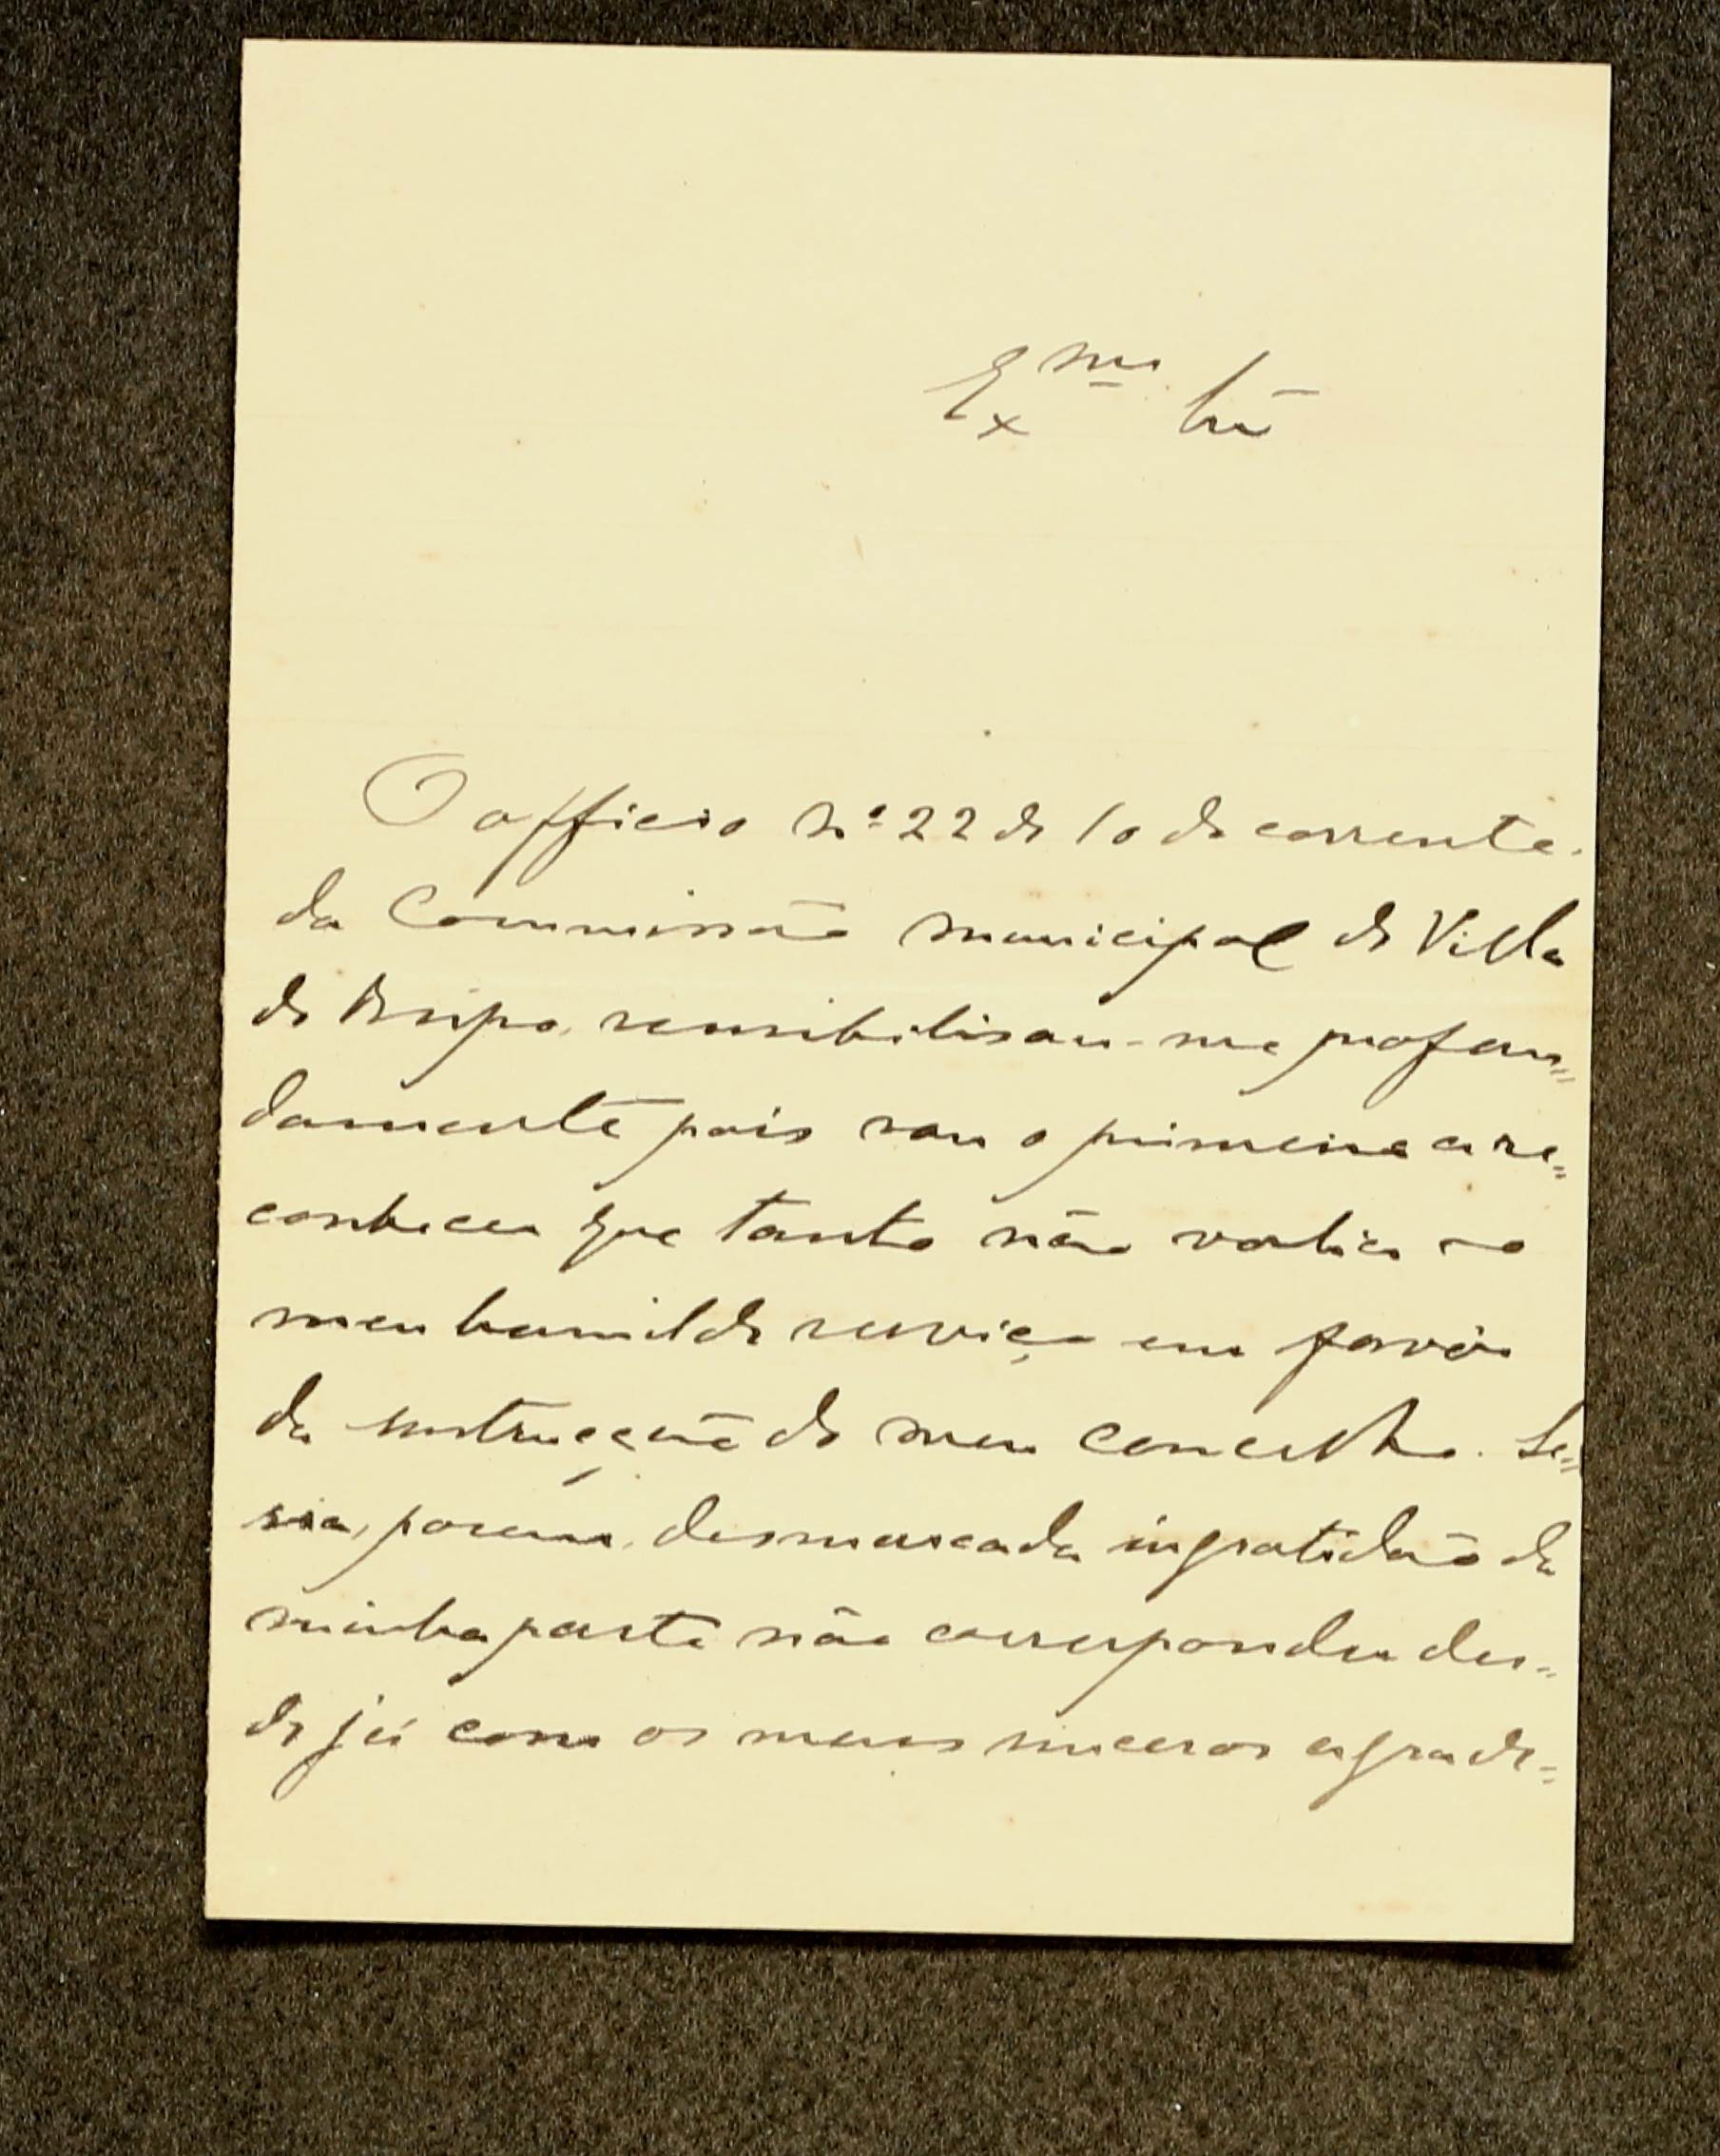 Exmo Snr
O officio Nº 22 de 10 do corrente
da Commissão municipal de Villa
do Bispo, sensibilisou-me profun=
damente pois sou o primeiro a re=
conhecer que tanto não valia o
meu humilde serviço em favôr
da instrucção do meu concelho. Se=
ria, porem, desmarcada ingratidão da
minha parte não corresponder des=
de já com os meus sinceros agrade=